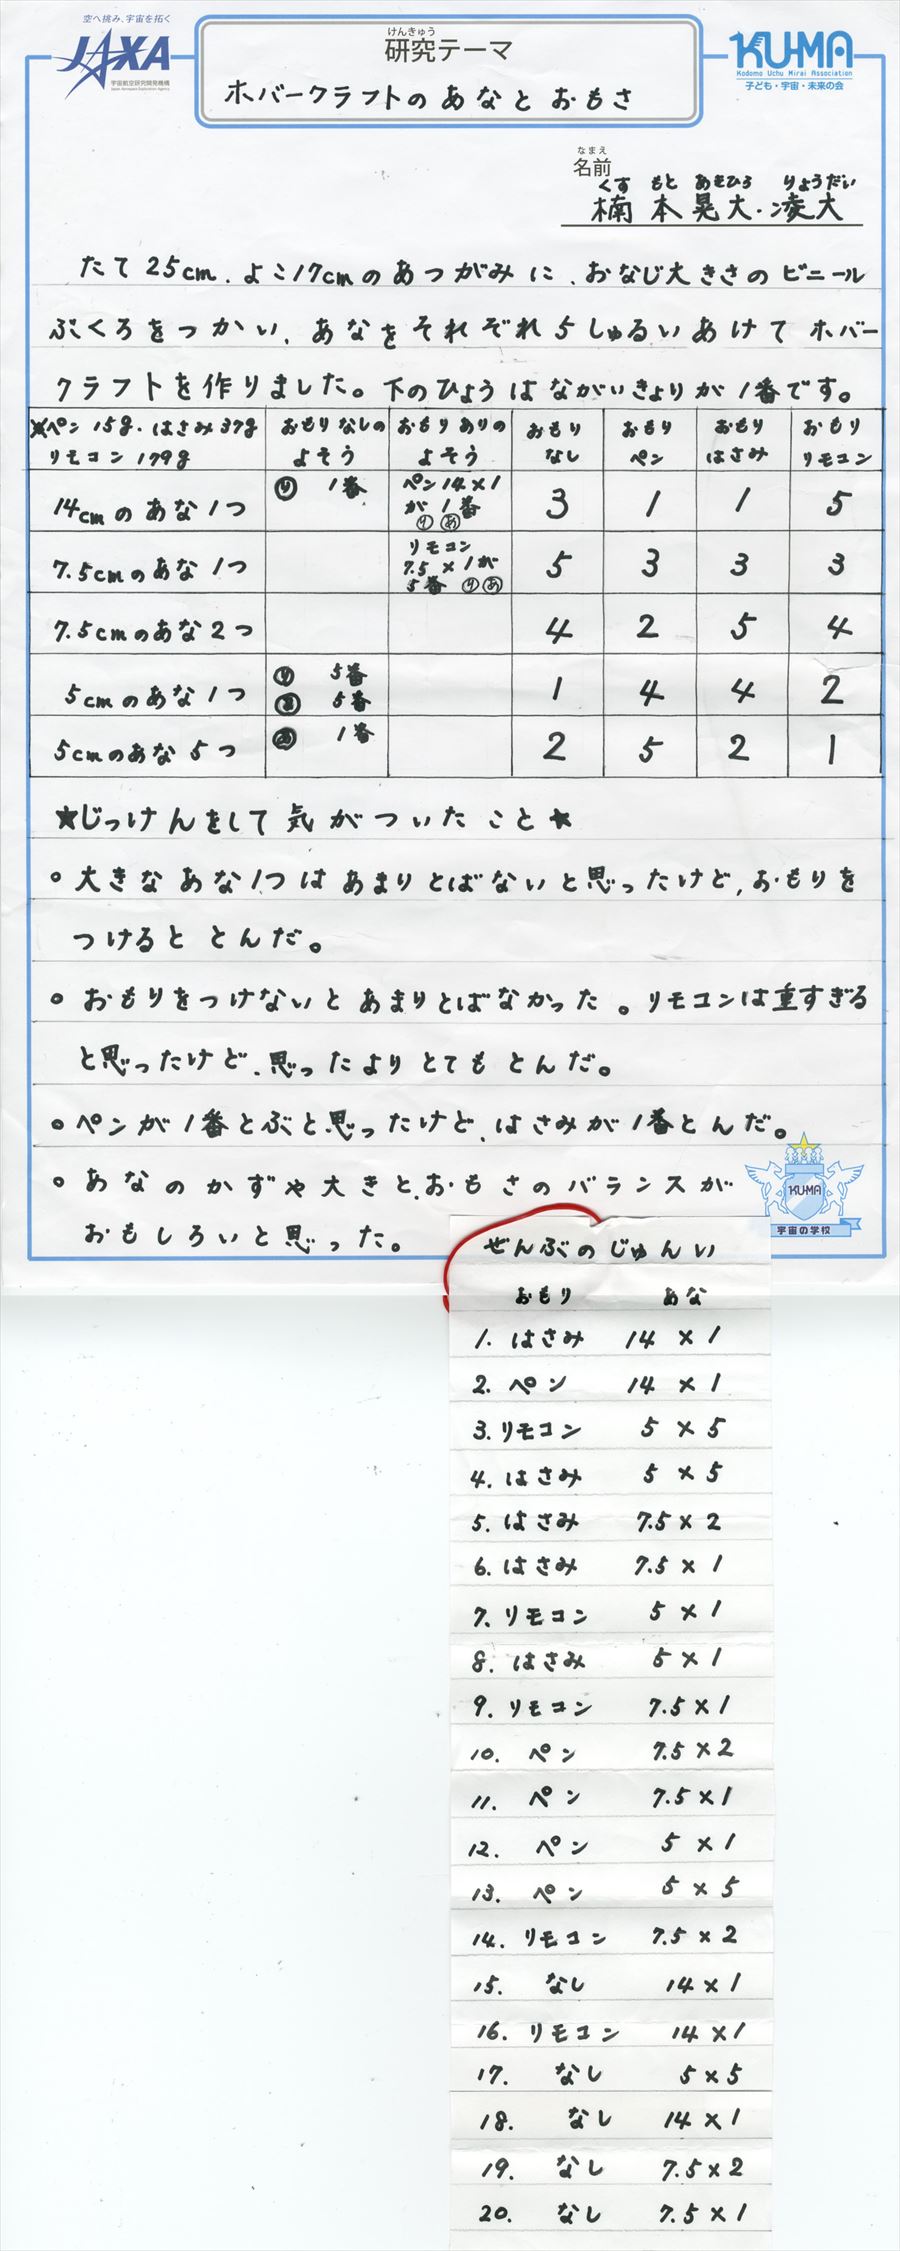 空へ挑み、宇宙を拓く
JAXA
宇宙航空研究開発機構
Japan Aerospace Exploration Agency
けんきゅう
研究テーマ
ホバークラフトのあなとおもさ
KU-MA
Kodomo Uchu Mirai Association
子ども・宇宙・未来の会
なまえ
名前
くすもと あきひろ りょうだい
楠本晃大・凌大
たて25cm、よこ17cmのあつがみに、おなじ大きさのビニール
ぶくろをつかい、あなをそれぞれ5しゅるいあけてホバー
クラフトを作りました。下のひょうはながいきょりが1番です。
※ペン15g・はさみ37g リモコン179g おもりなしのよそう おもりありのよそう おもりなし おもりペン おもりはさみ おもりリモコン
14cmのあな1つ ㋷ 1番 ペン14×1が1番 ㋷㋐ 3 1 1 5
7.5cmのあな1つ リモコン7.5×1が5番 ㋷㋐ 5 3 3 3
7.5cmのあな2つ 4 2 5 4
5cmのあな1つ ㋷ 5番 ㋐ 5番 1 4 4 2
5cmのあな5つ ㋐ 1番 2 5 2 1
★じっけんをして気がついたこと★
○大きなあな1つはあまりとばないと思ったけど、おもりを
つけるととんだ。
○おもりをつけないとあまりとばなかった。リモコンは重すぎる
と思ったけど、思ったよりとてもとんだ。
○ペンが1番とぶと思ったけど、はさみが1番とんだ。
○あなのかずや大きと、おもさのバランスが
おもしろいと思った。
KUMA
宇宙の学校
ぜんぶのじゅんい
おもり あな
1. はさみ 14×1
2. ペン 14×1
3. リモコン 5×5
4. はさみ 5×5
5. はさみ 7.5×2
6. はさみ 7.5×1
7. リモコン 5×1
8. はさみ 5×1
9. リモコン 7.5×1
10. ペン 7.5×2
11. ペン 7.5×1
12. ペン 5×1
13. ペン 5×5
14. リモコン 7.5×2
15. なし 14×1
16. リモコン 14×1
17. なし 5×5
18. なし 14×1
19. なし 7.5×2
20. なし 7.5×1